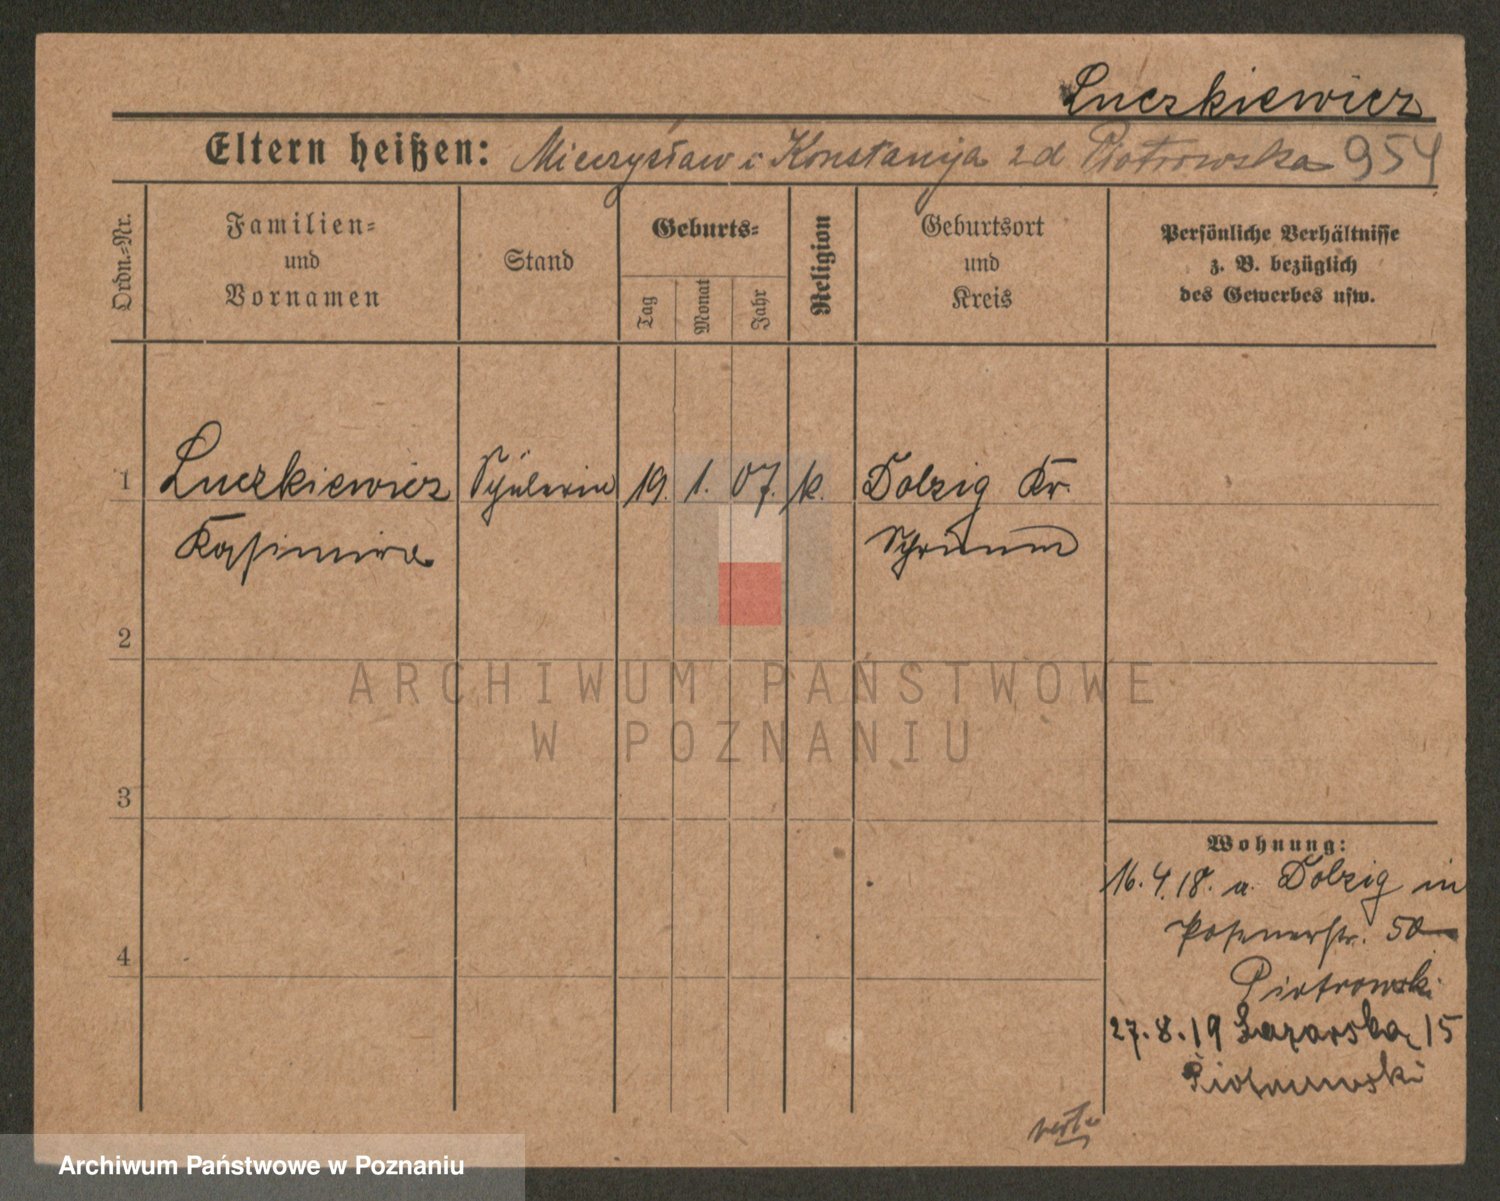 Luczkiewicz
Eltern heißen: Mieczysław i Konstancja z d Piotrowska 954
Ordn.-Nr.
Familien-
und
Vornamen
Stand
Geburts-
Tag
Monat
Jahr
Religion
Geburtsort
und
Kreis
Persönliche Verhältnisse
z. B. bezüglich
des Gewerbes usw.
1 Luczkiewicz Schülerin 19. 1. 07. k. Dolzig Kr.
Kasimira Schrimm
2
ARCHIWUM PAŃSTWOWE
W POZNANIU
3
Wohnung:
16.4.18. a. Dolzig in
Posenerstr. 50
4
Piotrowski
27.8.19 Łazarska 15
Piotrowski
verte
Archiwum Państwowe w Poznaniu